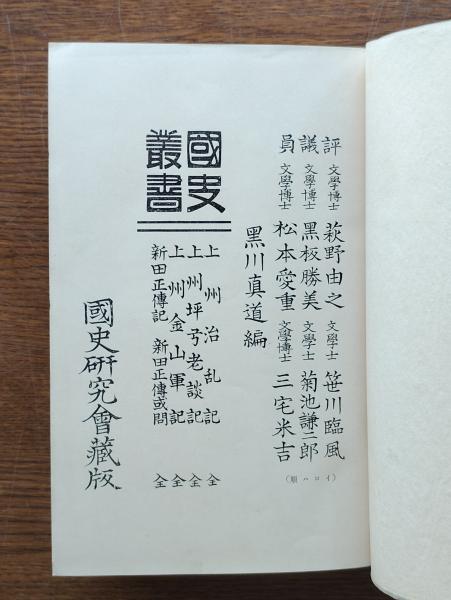 評議員
文學博士 萩野由之 文學士 笹川臨風
文學博士 黑板勝美 文學士 菊池謙二郎
文學博士 松本愛重 文學博士 三宅米吉
(イロハ順)
黑川真道編
國史叢書
上州治乱記 全
上州坪弓老談記 全
上州金山軍記 全
新田正傳記 新田正傳或問 全
國史研究會藏版